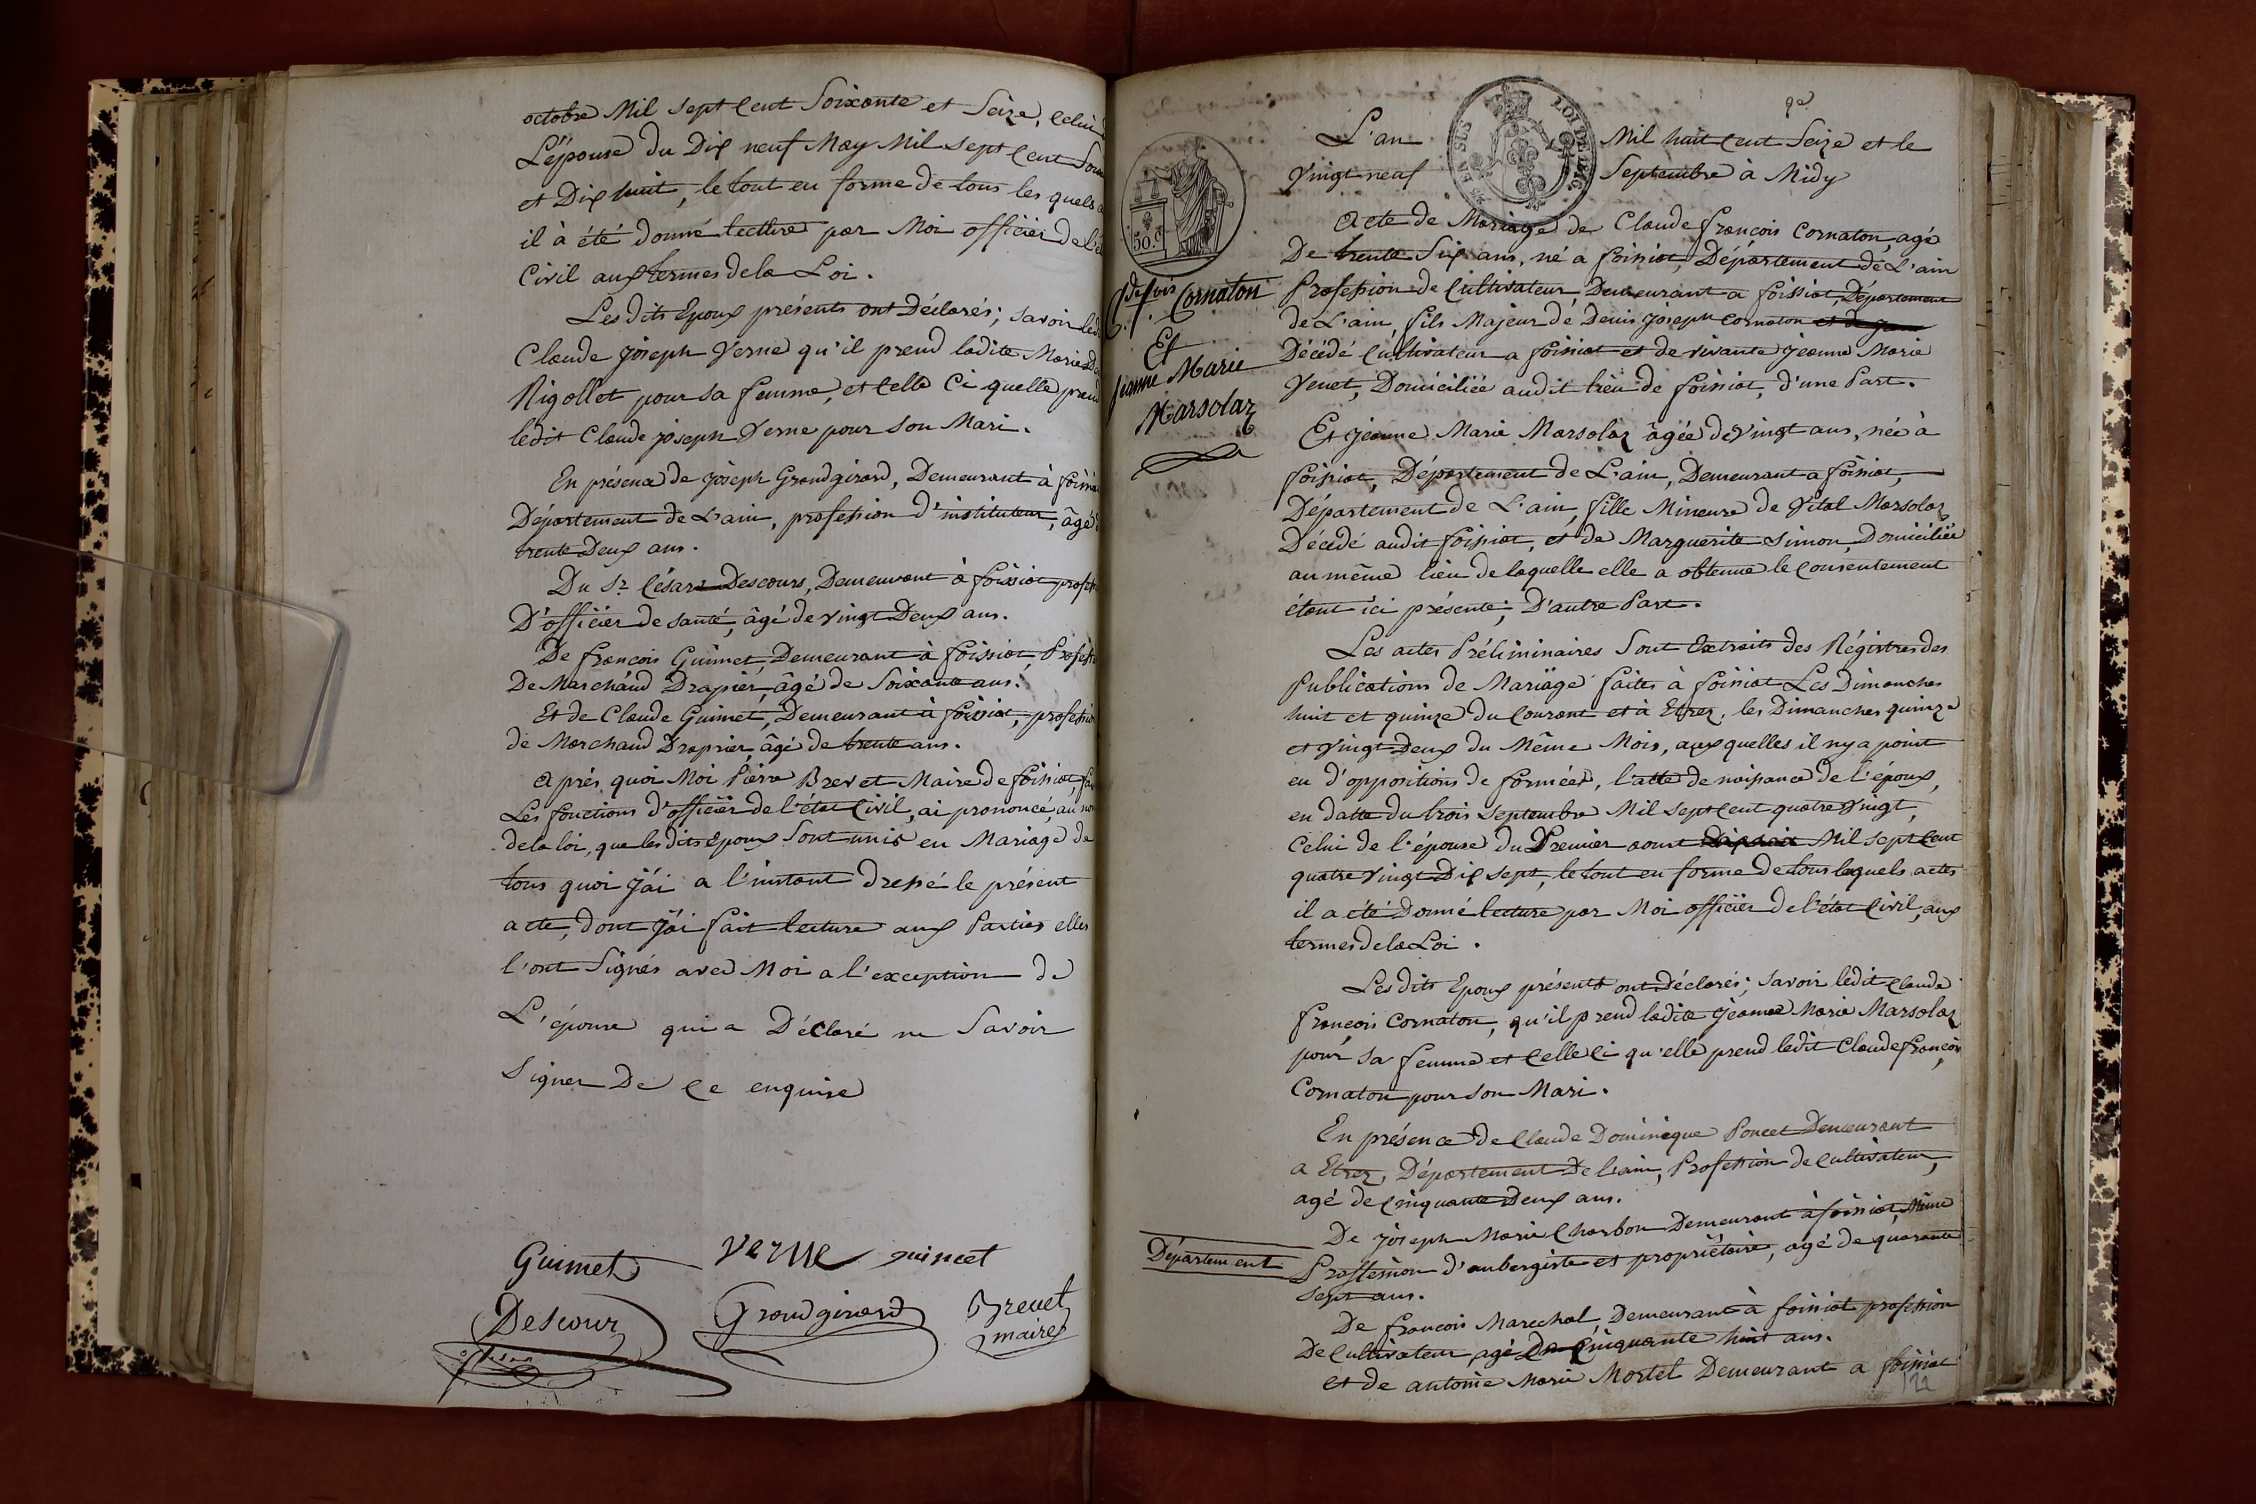 octobre Mil sept Cent Soixante et Seize, Celui
L'épouse du Dix neuf May Mil sept Cent
et Dix huit, le tout en forme de tous les quels
il à été donné lectture par Moi officier de l'
Civil aux termes de la Loi.
Les dits Epoux présents ont Déclarés; Savoir
Claude joseph Verne qu'il prend ladite Marie
Rigollet pour sa femme, et Celle Ci quelle prend
ledit Claude joseph Verne pour son Mari.
En présence de joseph Grandgirard, Demeurant à
Département de L'ain, profession d'instituteur, âgé
trente Deux ans.
Du Sr César Descours, Demeurant à foissiat
D'officier de santé, âgé de vingt Deux ans.
De françois Guimet, Demeurant à foissiat,
De Marchand Drapier, âgé de Soixante ans.
Et de Claude Guimet, Demeurant à foissiat, profession
de Marchand Drapier, âgé de trente ans.
après quoi Moi Pierre Brevet Maire de foissiat,
Les fonctions d'officier de l'état Civil, ai prononcé, au nom
de la loi, que les dits epoux Sont unis en Mariage de
tous quoi J'ai a l'instant dressé le présent
acte, dont j'ai fait lecture aux Parties elles
l'ont Signés avec Moi a l'exception de
L'épouse qui a Déclaré ne Savoir
Signer De Ce enquise
Guimet Verne guimet
Descour Grandgirard Brevet
maire
L'an Mil huit Cent Seize et le
Vingt neuf Septembre à Midy
LOI DE 1816
EN SUS
50.c
acte de Mariage de Claude françois Cornaton, agé
De trente Six ans, né a foissiat, Département de L'ain
Profession de Cultivateur Demeurant a foissiat, Département
de L'ain, fils Majeur de Denis joseph Cornaton
Décédé Cultivateur a foissiat et de vivante jeanne Marie
Venet, Domiciliée audit lieu de foissiat, d'une Part.
Cornaton
Et
jeanne Marie
Marsolaz
Et jeanne Marie Marsolaz âgée de Vingt ans, née à
foissiat, Département de L'ain, Demeurant a foissiat,
Département de L'ain, fille Mineure de Vital Marsolaz
Décédé audit foissiat, et de Marguerite Simon, Domiciliée
au même lieu de laquelle elle a obtenue le Consentement
étant ici présente; D'autre Part.
Les actes Préliminaires Sont Extraits des Régistres des
Publications de Mariage faites à foissiat Les Dimanches
huit et quinze du Courant et à Etrez, les Dimanches quinze
et Vingt Deux du Même Mois, aux quelles il ny a point
eu d'oppositions de formées, l'atte de naissance de l'époux,
en datte du trois Septembre Mil Sept Cent quatre Vingt,
Celui de l'épouse du Premier aoust Mil sept Cent
quatre Vingt Dix sept, le tout en forme De tous lesquels actes
il a été Donné lecture par Moi officier de l'état Civil, aux
termes de la Loi.
Les dits Epoux présents ont déclarés; Savoir ledit Claude
françois Cornaton, qu'il prend ladite jéanne Marie Marsolaz
pour sa femme et Celle Ci qu'elle prend ledit Claude françois
Cornaton pour son Mari.
En présence de Claude Dominique Poncet Demeurant
a Etrez, Département De l'ain, Profession de Cultivateur,
agé de Cinquante Deux ans.
De joseph Marie Charbon Demeurant à foissiat, Même
Département Proffession d'aubergiste et propriétaire, agé de quarante
Sept ans.
De françois Marechal, Demeurant à foissiat profession
De Cultivateur, agé De Cinquante huit ans.
et de antoine Marie Mortel Demeurant a foissiat